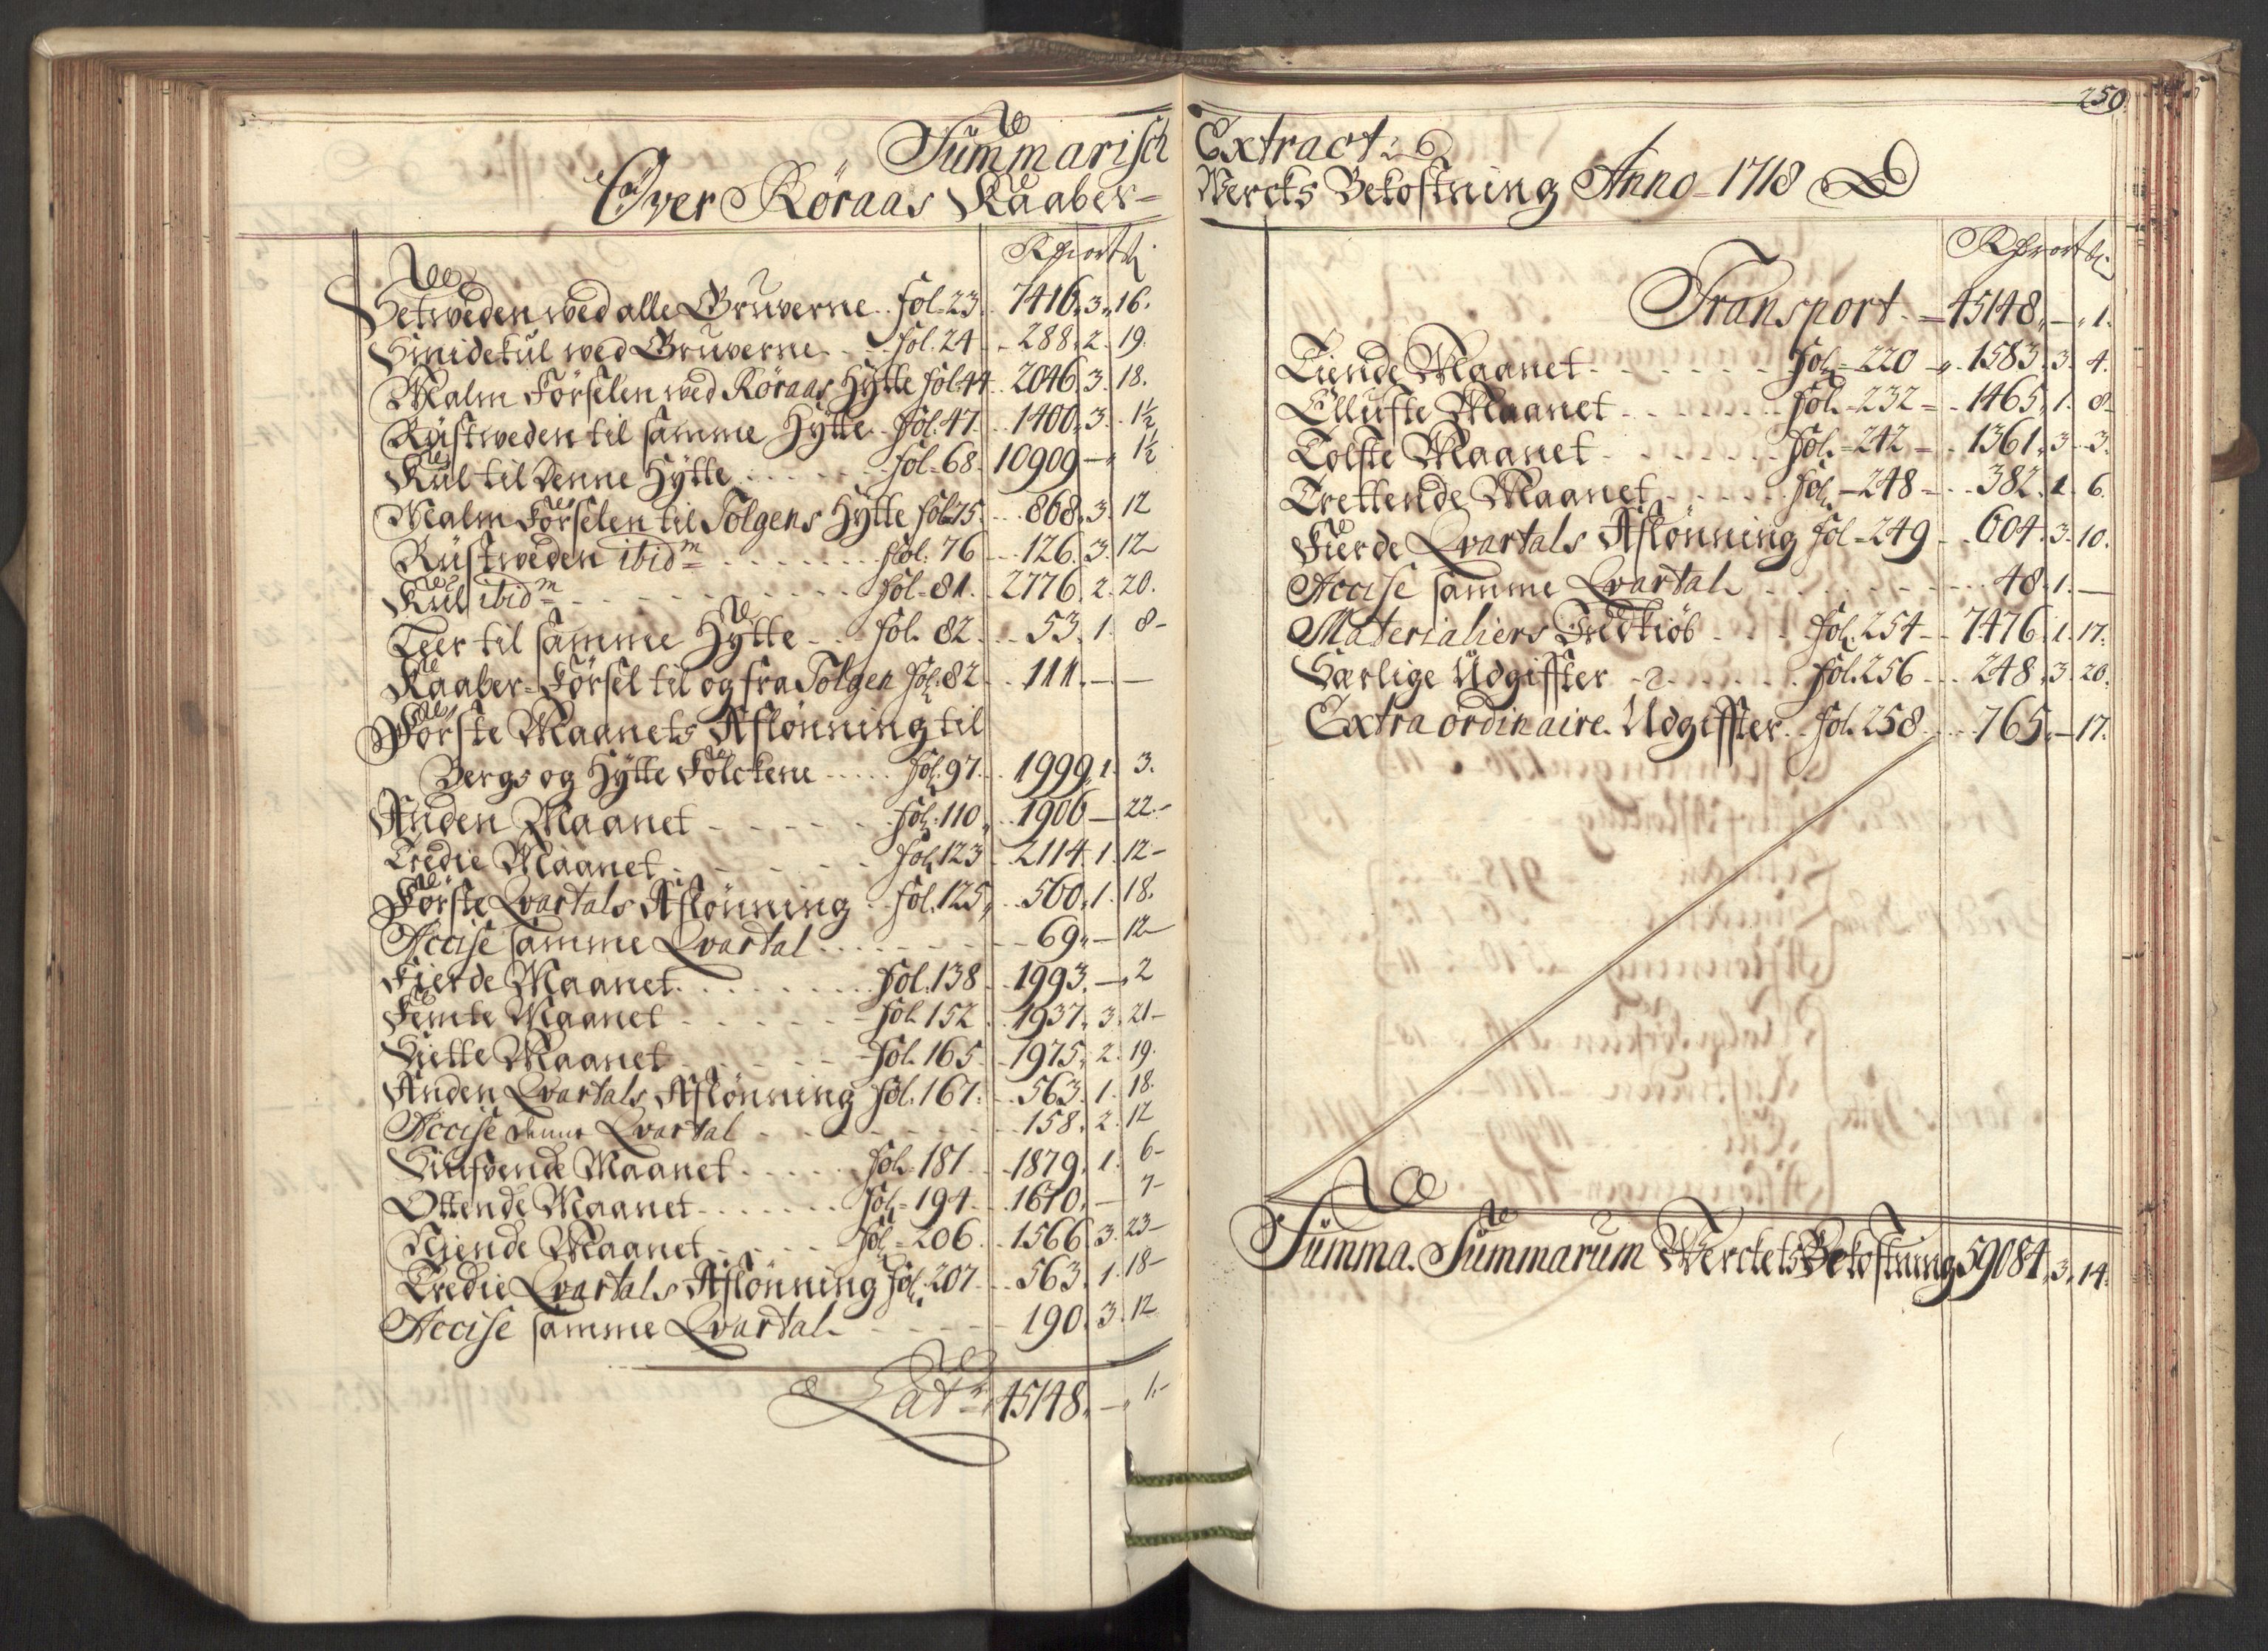 Summarisch
Over Röraas Kaaber-
Rdr ort ß
Setweden wed alle Gruverne .. Fol. 23. 7416. 3. 16.
Smidekul wed Gruverne ... Fol. 24 .. 288. 2. 19.
Malm Förselen wed Röraas Hÿtte Fol. 44 .. 2046. 3. 18.
Rüstweden til samme Hÿtte .. Fol. 47. .. 1400. 3. 1½
Kul til denne Hÿtte ...... Fol. 68. 10909 — 1½
Malm Förselen til Tolgens Hÿtte Fol. 75. .. 868. 3. 12
Rüstweden ibidm ........ Fol. 76 .. 126. 3. 12
Kul ibidm ........ Fol. 81. .. 2776. 2. 20.
Teer til samme Hÿtte ... Fol. 82 .. 53. 1. 8-
Kaaber-Försel til og fra Tolgen Fol. 82 .. 111. — —
Förste Maanets Aflönning til
Bergs og Hÿtte Folckene ..... Fol. 97. .. 1999. 1. 3.
Anden Maanet ....... Fol. 110. .. 1906 — 22.-
Tredie Maanet ....... Fol. 123 .. 2114. 1. 12-
Förste Qvartals Aflönning .. Fol. 125. .. 560. 1. 18.
Accise samme Qvartal ....... 69. — 12
Fierde Maanet ........ Fol. 138 .. 1993. —. 2
Femte Maanet ....... Fol. 152 .. 1937. 3. 21-
Siette Maanet ....... Fol. 165 .. 1975. 2. 19.
Anden Qvartals Aflönning Fol. 167. .. 563. 1. 18.
Accise denne Qvartal ........ 158. 2. 12
Siufvende Maanet ..... Fol. 181 .. 1879. 1. 6-
Ottende Maanet ....... Fol. 194 .. 1670. — 7-
Niende Maanet ..... Fol. 206 .. 1566. 3. 23-
Tredie Qvartals Aflönning Fol. 207 .. 563. 1. 18-
Accise samme Qvartal ...... 190. 3. 12
Lats 45148. —. 1.-
250.
Extract
Wercks Bekostning Anno 1718
Rdr ort ß
Transport. = 45148. —. 1.
Tiende Maanet ....... Fol. 220 .. 1583. 3. 4.
Ellufte Maanet ....... Fol. 232 = . 1465. 1. 8-
Tolfte Maanet ....... Fol. 242 = . 1361. 3. 3.
Trettende Maanet ...... Fol. 248 = .. 382. 1. 6.
Fierde Qvartals Aflönning Fol. 249 .. 604. 3. 10.
Accise samme Qvartal ........ 48. 1. —
Materialiers Indkiöb .... Fol. 254 .. 7476. 1. 17.
Særlige Udgiffter ...... Fol. 256 .. 248. 3. 20.
Extra ordinaire Udgiffter .. Fol. 258. .. 765. — 17.
Summa Summarum Werckets Bekostning 59084. 3. 14.